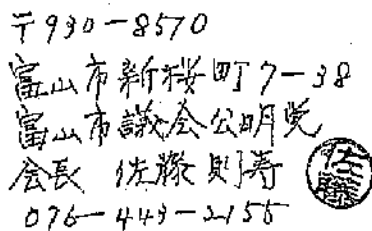 〒930-8570
富山市新桜町7-38
富山市議会公明党
会長 佐藤則寿
佐藤
076-443-2155